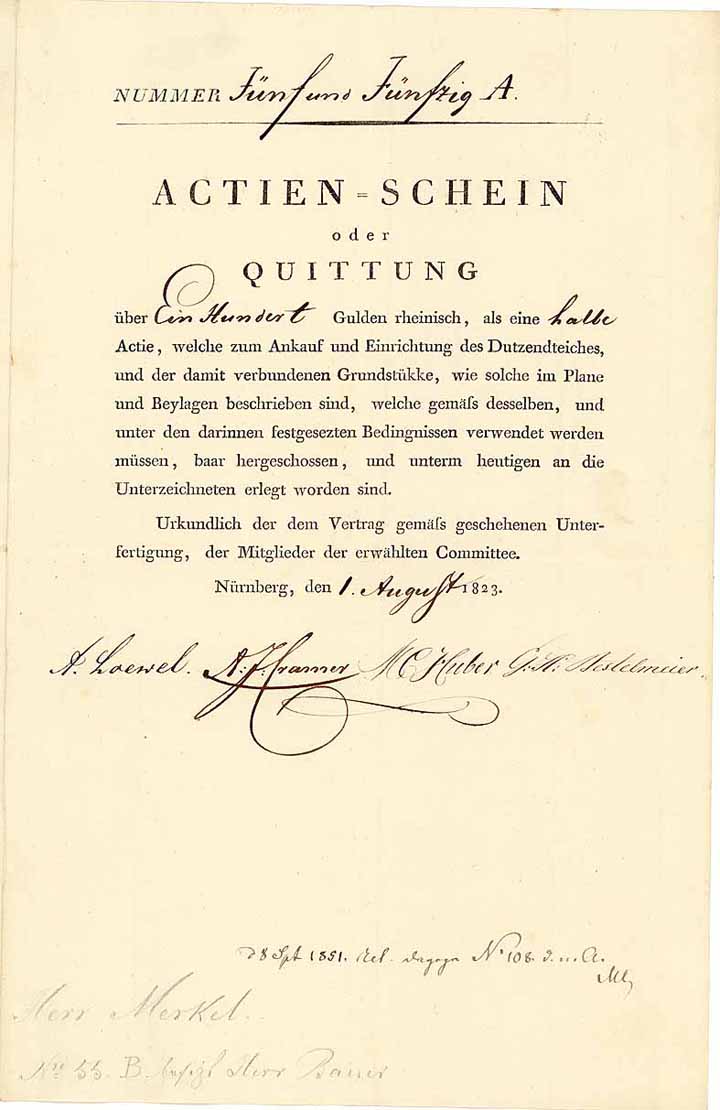 NUMMER Fünf und Fünfzig A.
ACTIEN = SCHEIN
oder
QUITTUNG
über Ein Hundert Gulden rheinisch, als eine halbe
Actie, welche zum Ankauf und Einrichtung des Dutzendteiches,
und der damit verbundenen Grundstükke, wie solche im Plane
und Beylagen beschrieben sind, welche gemäſs desselben, und
unter den darinnen festgesezten Bedingnissen verwendet werden
müssen, baar hergeschossen, und unterm heutigen an die
Unterzeichneten erlegt worden sind.
Urkundlich der dem Vertrag gemäſs geschehenen Unter-
fertigung, der Mitglieder der erwählten Committee.
Nürnberg, den 1. August 1823.
A. Loewel. A: J: Cramer M C Huber G. N. Bestelmeier.
8 Spt 1851. dagegen No 108.
Herr Merkel.
No 55. B. besizt Herr Bauer